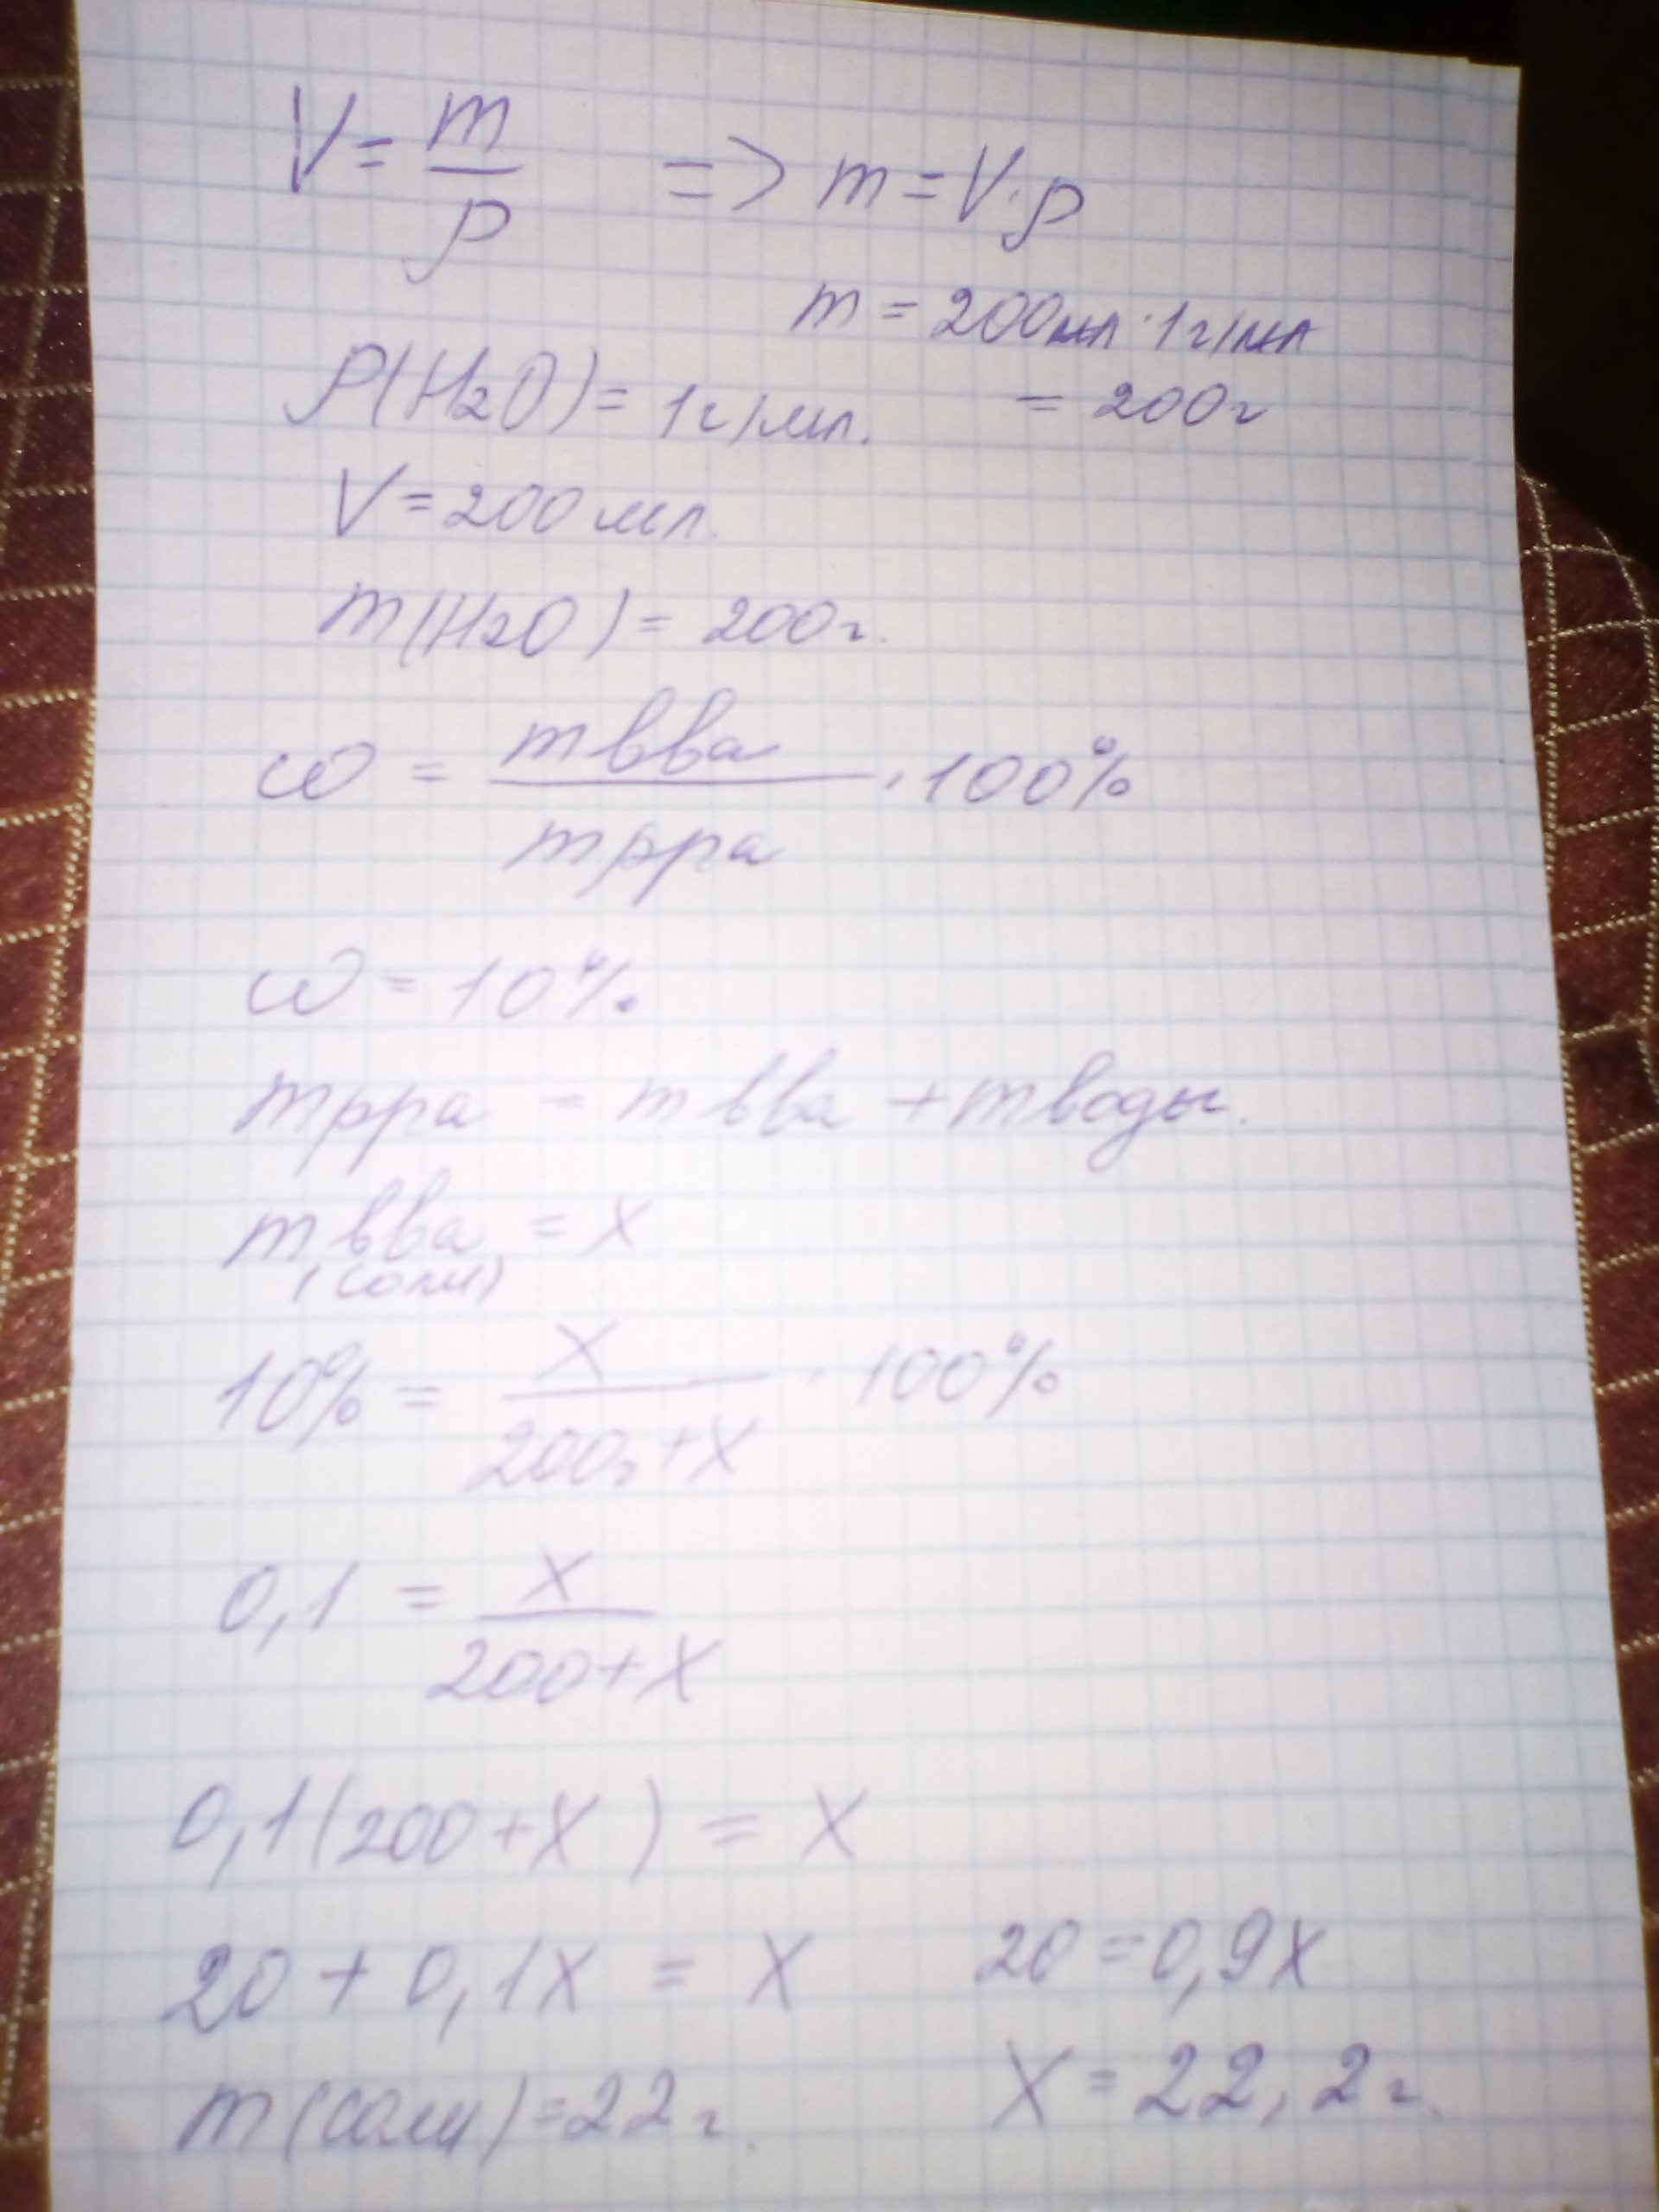 V = m/ρ => m = V·ρ
m = 200мл · 1г/мл
ρ(H2O) = 1г/мл. = 200г
V = 200 мл.
m(H2O) = 200г.
ω = m вва / m рра · 100%
ω = 10%
m рра = m вва + m воды.
m вва = x
(соли)
10% = x / 200г + x · 100%
0,1 = x / 200 + x
0,1(200 + x) = x
20 + 0,1x = x 20 = 0,9x
m(соли) = 22г. x = 22,2г.